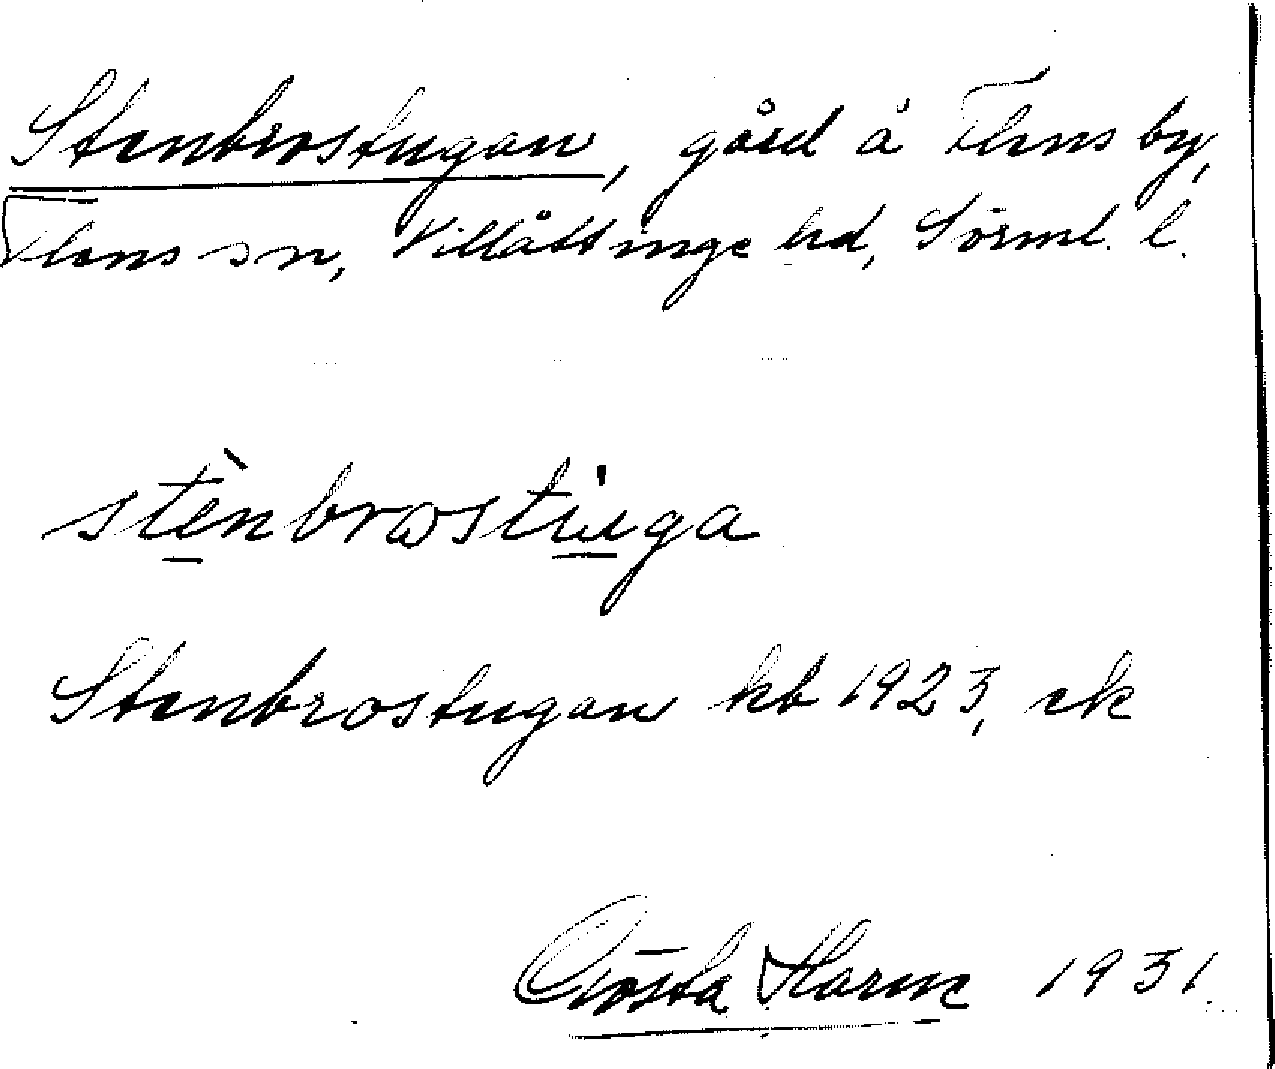 Stenbrostugan, gård å Flens by,
Flens sn, Villåttinge hd, Sörml. l.
stènbrostu̍ga
Stenbrostugan kb 1923, ek
Gösta Harm 1931.